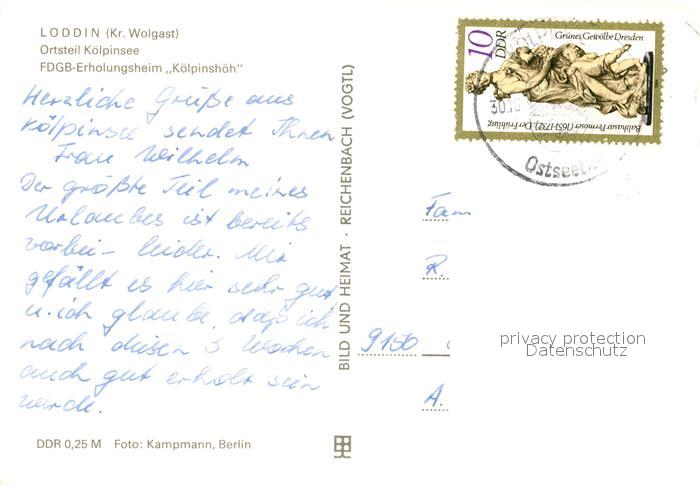 LODDIN (Kr. Wolgast)
Ortsteil Kölpinsee
FDGB-Erholungsheim „Kölpinshöh"
Herzliche Grüße aus
Kölpinsee sendet Ihnen
Frau Wilhelm
Der größte Teil meines
Urlaubes ist bereits
vorbei - leider. Mir
gefällt es hier sehr gut
u. ich glaube, daß ich
nach diesen 3 Wochen
auch gut erholt sein
werde.
DDR 0,25 M Foto: Kampmann, Berlin
BILD UND HEIMAT · REICHENBACH (VOGTL)
10 DDR
Grünes Gewölbe Dresden
Balthasar Permoser (1651-1732), Der Frühling
30.10
Ostsee
Fam
R.
9150
A.
privacy protection
Datenschutz